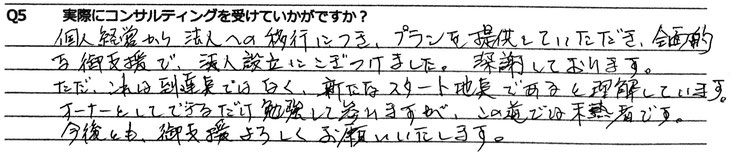 Q5 実際にコンサルティングを受けていかがですか?
個人経営から法人への移行につき、プランを提供していただき、全面的
な御支援で、法人設立にこぎつけました。深謝しております。
ただ、これは到達点ではなく、新たなスタート地点であると理解しています。
オーナーとしてできるだけ勉強して参りますが、この道では未熟者です。
今後とも、御支援よろしくお願いいたします。